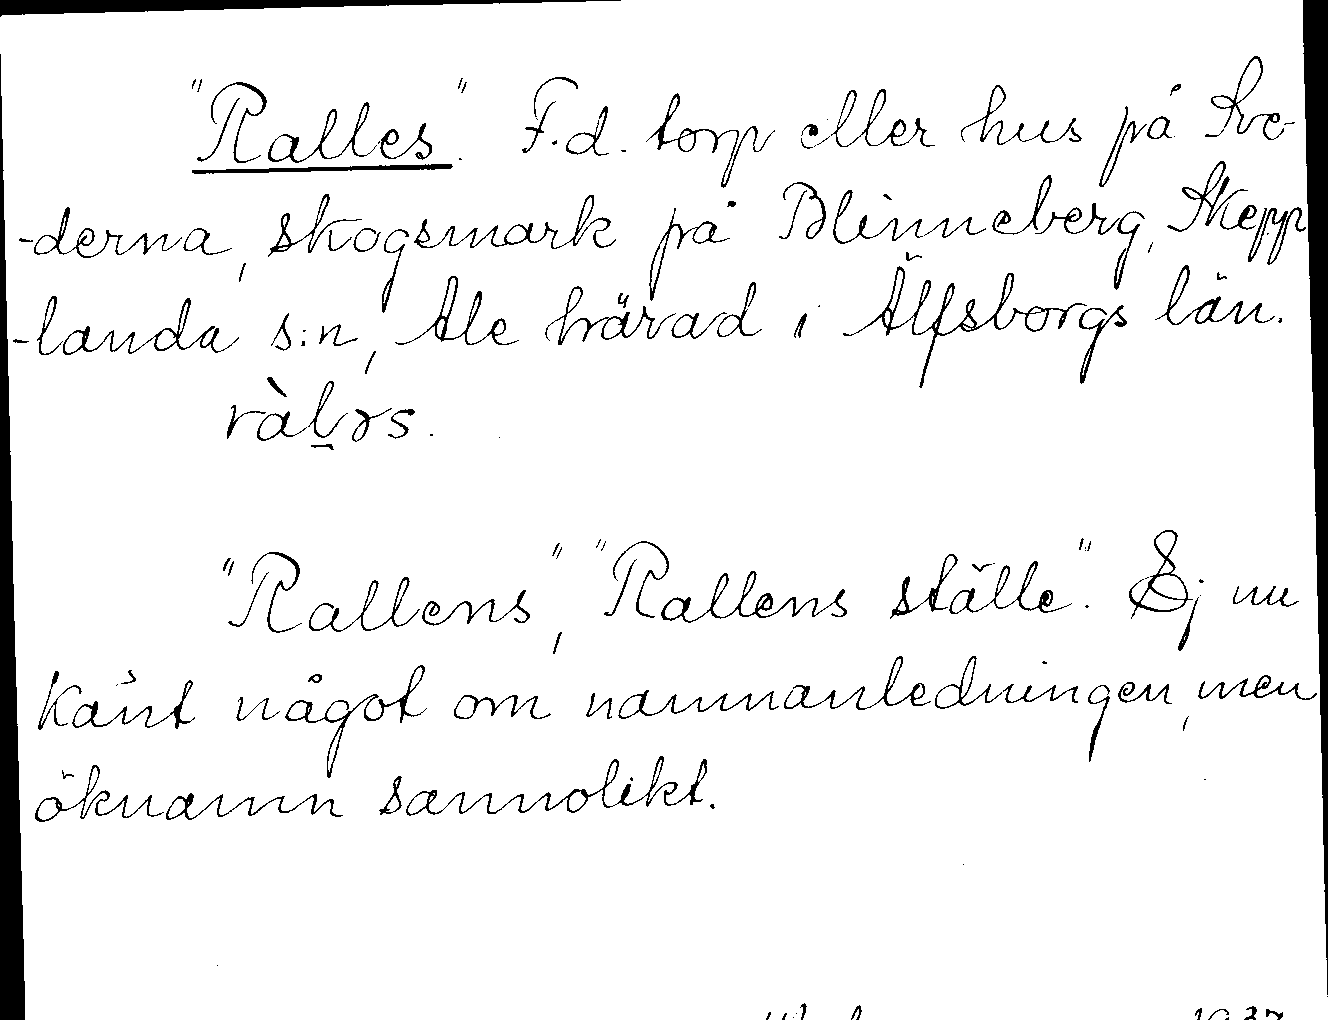 "Ralles". F.d. torp eller hus på Sve-
-derna, skogsmark på Blinneberg, Skepp
-landa s:n, Ale härad i Älfsborgs län.
ràlɜs.
"Rallens", "Rallens ställe". Ej nu
känt något om namnanledningen, men
öknamn sannolikt.
1937